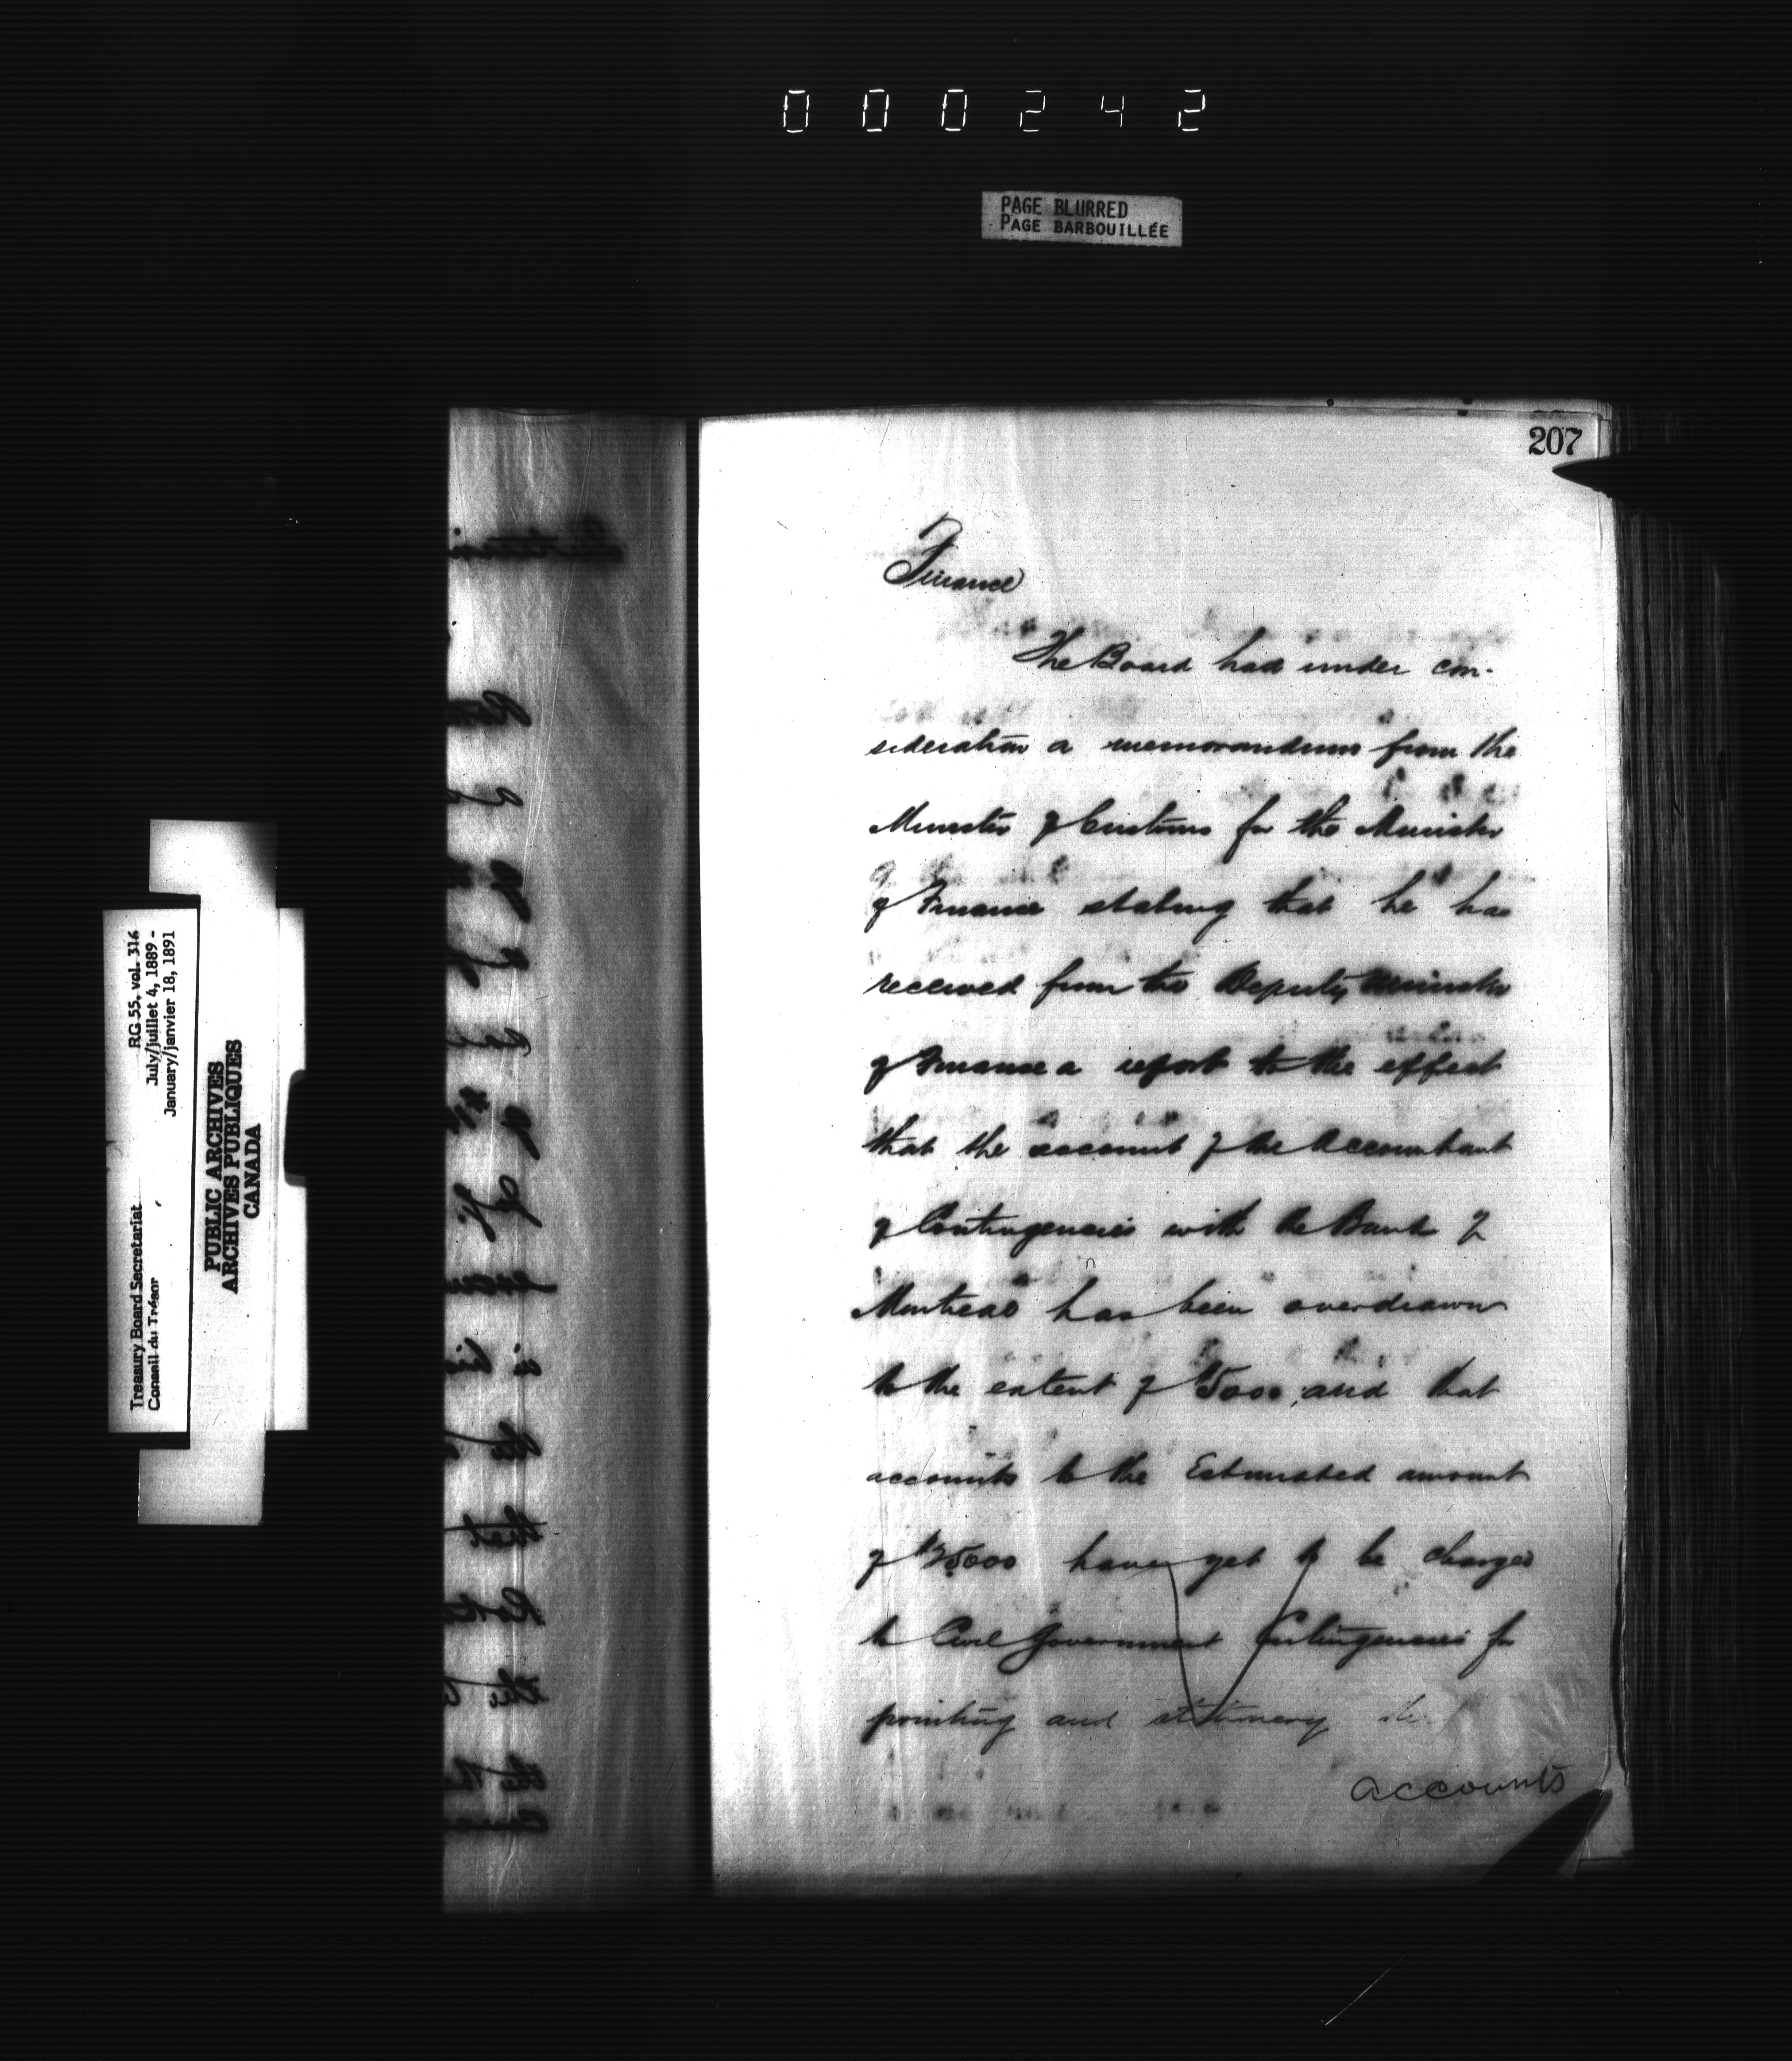 000242
PAGE BLURRED
PAGE BARBOUILLÉE
207
Finance
The Board had under con-
sideration a memorandum from the
Minister of Customs for the Minister
of Finance stating that he has
received from the Deputy Minister
of Finance a report to the effect
that the account of the Accountant
of Contingencies with the Bank of
Montreal has been overdrawn
to the extent of $5000, and that
accounts to the Estimated amount
of $25000 have yet to be charged
to Civil Government Contingencies for
printing and stationery
accounts
RG 55, vol. 316
July/juillet 4, 1889 -
January/janvier 18, 1891
Treasury Board Secretariat
Conseil du Trésor
PUBLIC ARCHIVES
ARCHIVES PUBLIQUES
CANADA